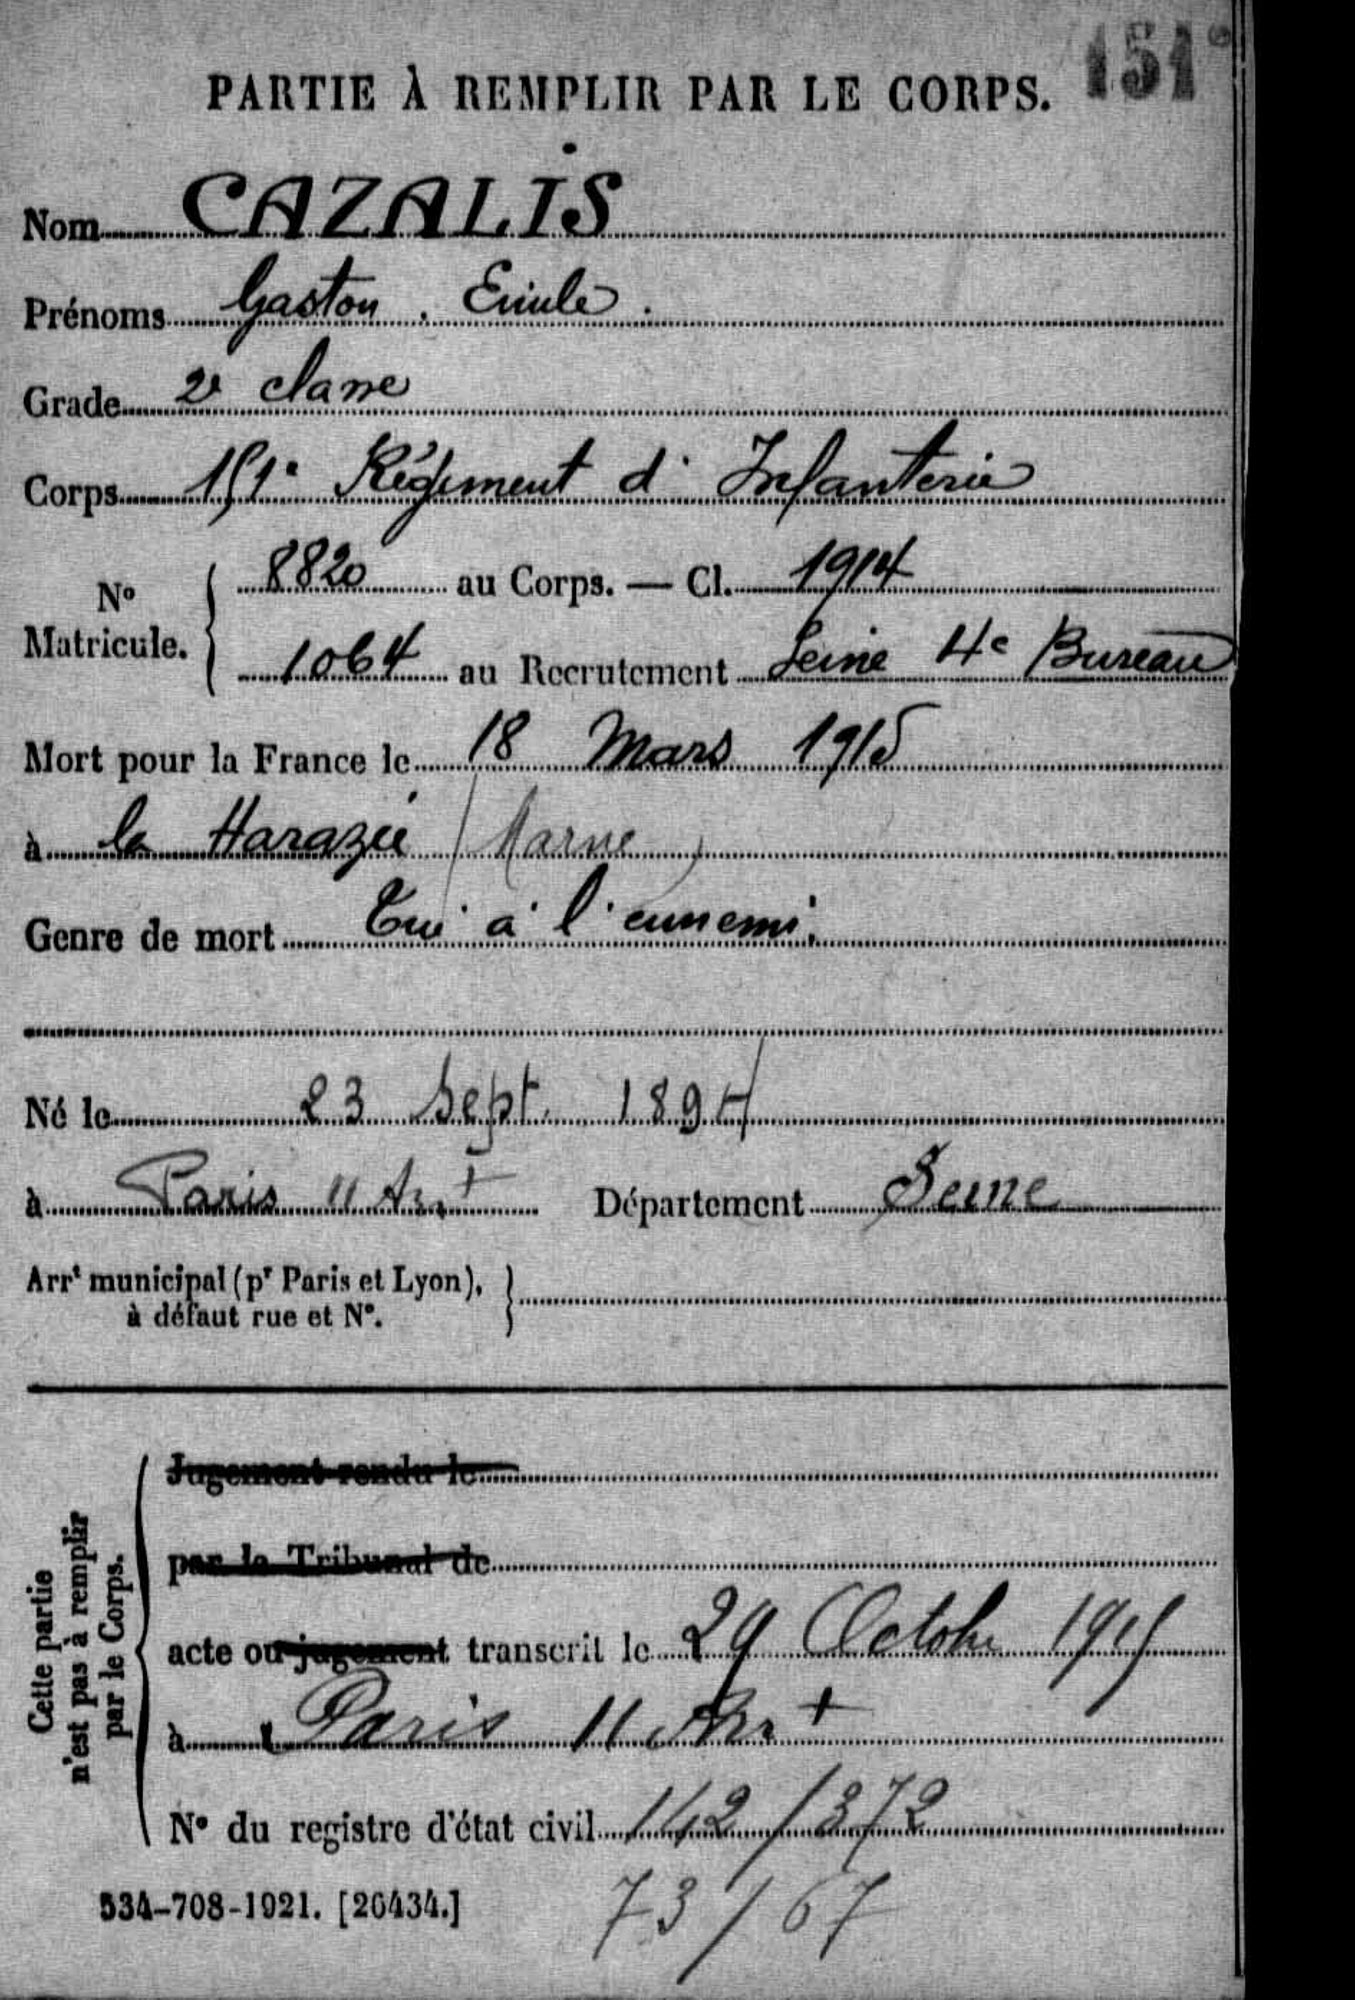 151e
PARTIE À REMPLIR PAR LE CORPS.
Nom CAZALIS
Prénoms Gaston. Emile.
Grade 2e classe
Corps 151e Régiment d'Infanterie
No Matricule. 8820 au Corps. — Cl. 1914
1064 au Recrutement Seine 4e Bureau
Mort pour la France le 18 Mars 1915
à la Harazée (Marne)
Genre de mort Tué à l'ennemi.
Né le 23 Sept. 1894
à Paris 11 Arrt Département Seine
Arrt municipal (pr Paris et Lyon),
à défaut rue et No.
Cette partie
n'est pas à remplir
par le Corps.
Jugement rendu le
par le Tribunal de
acte ou jugement transcrit le 29 Octobre 1915
à Paris 11 Arrt
No du registre d'état civil 142/372
534-708-1921. [26434.]
73/67